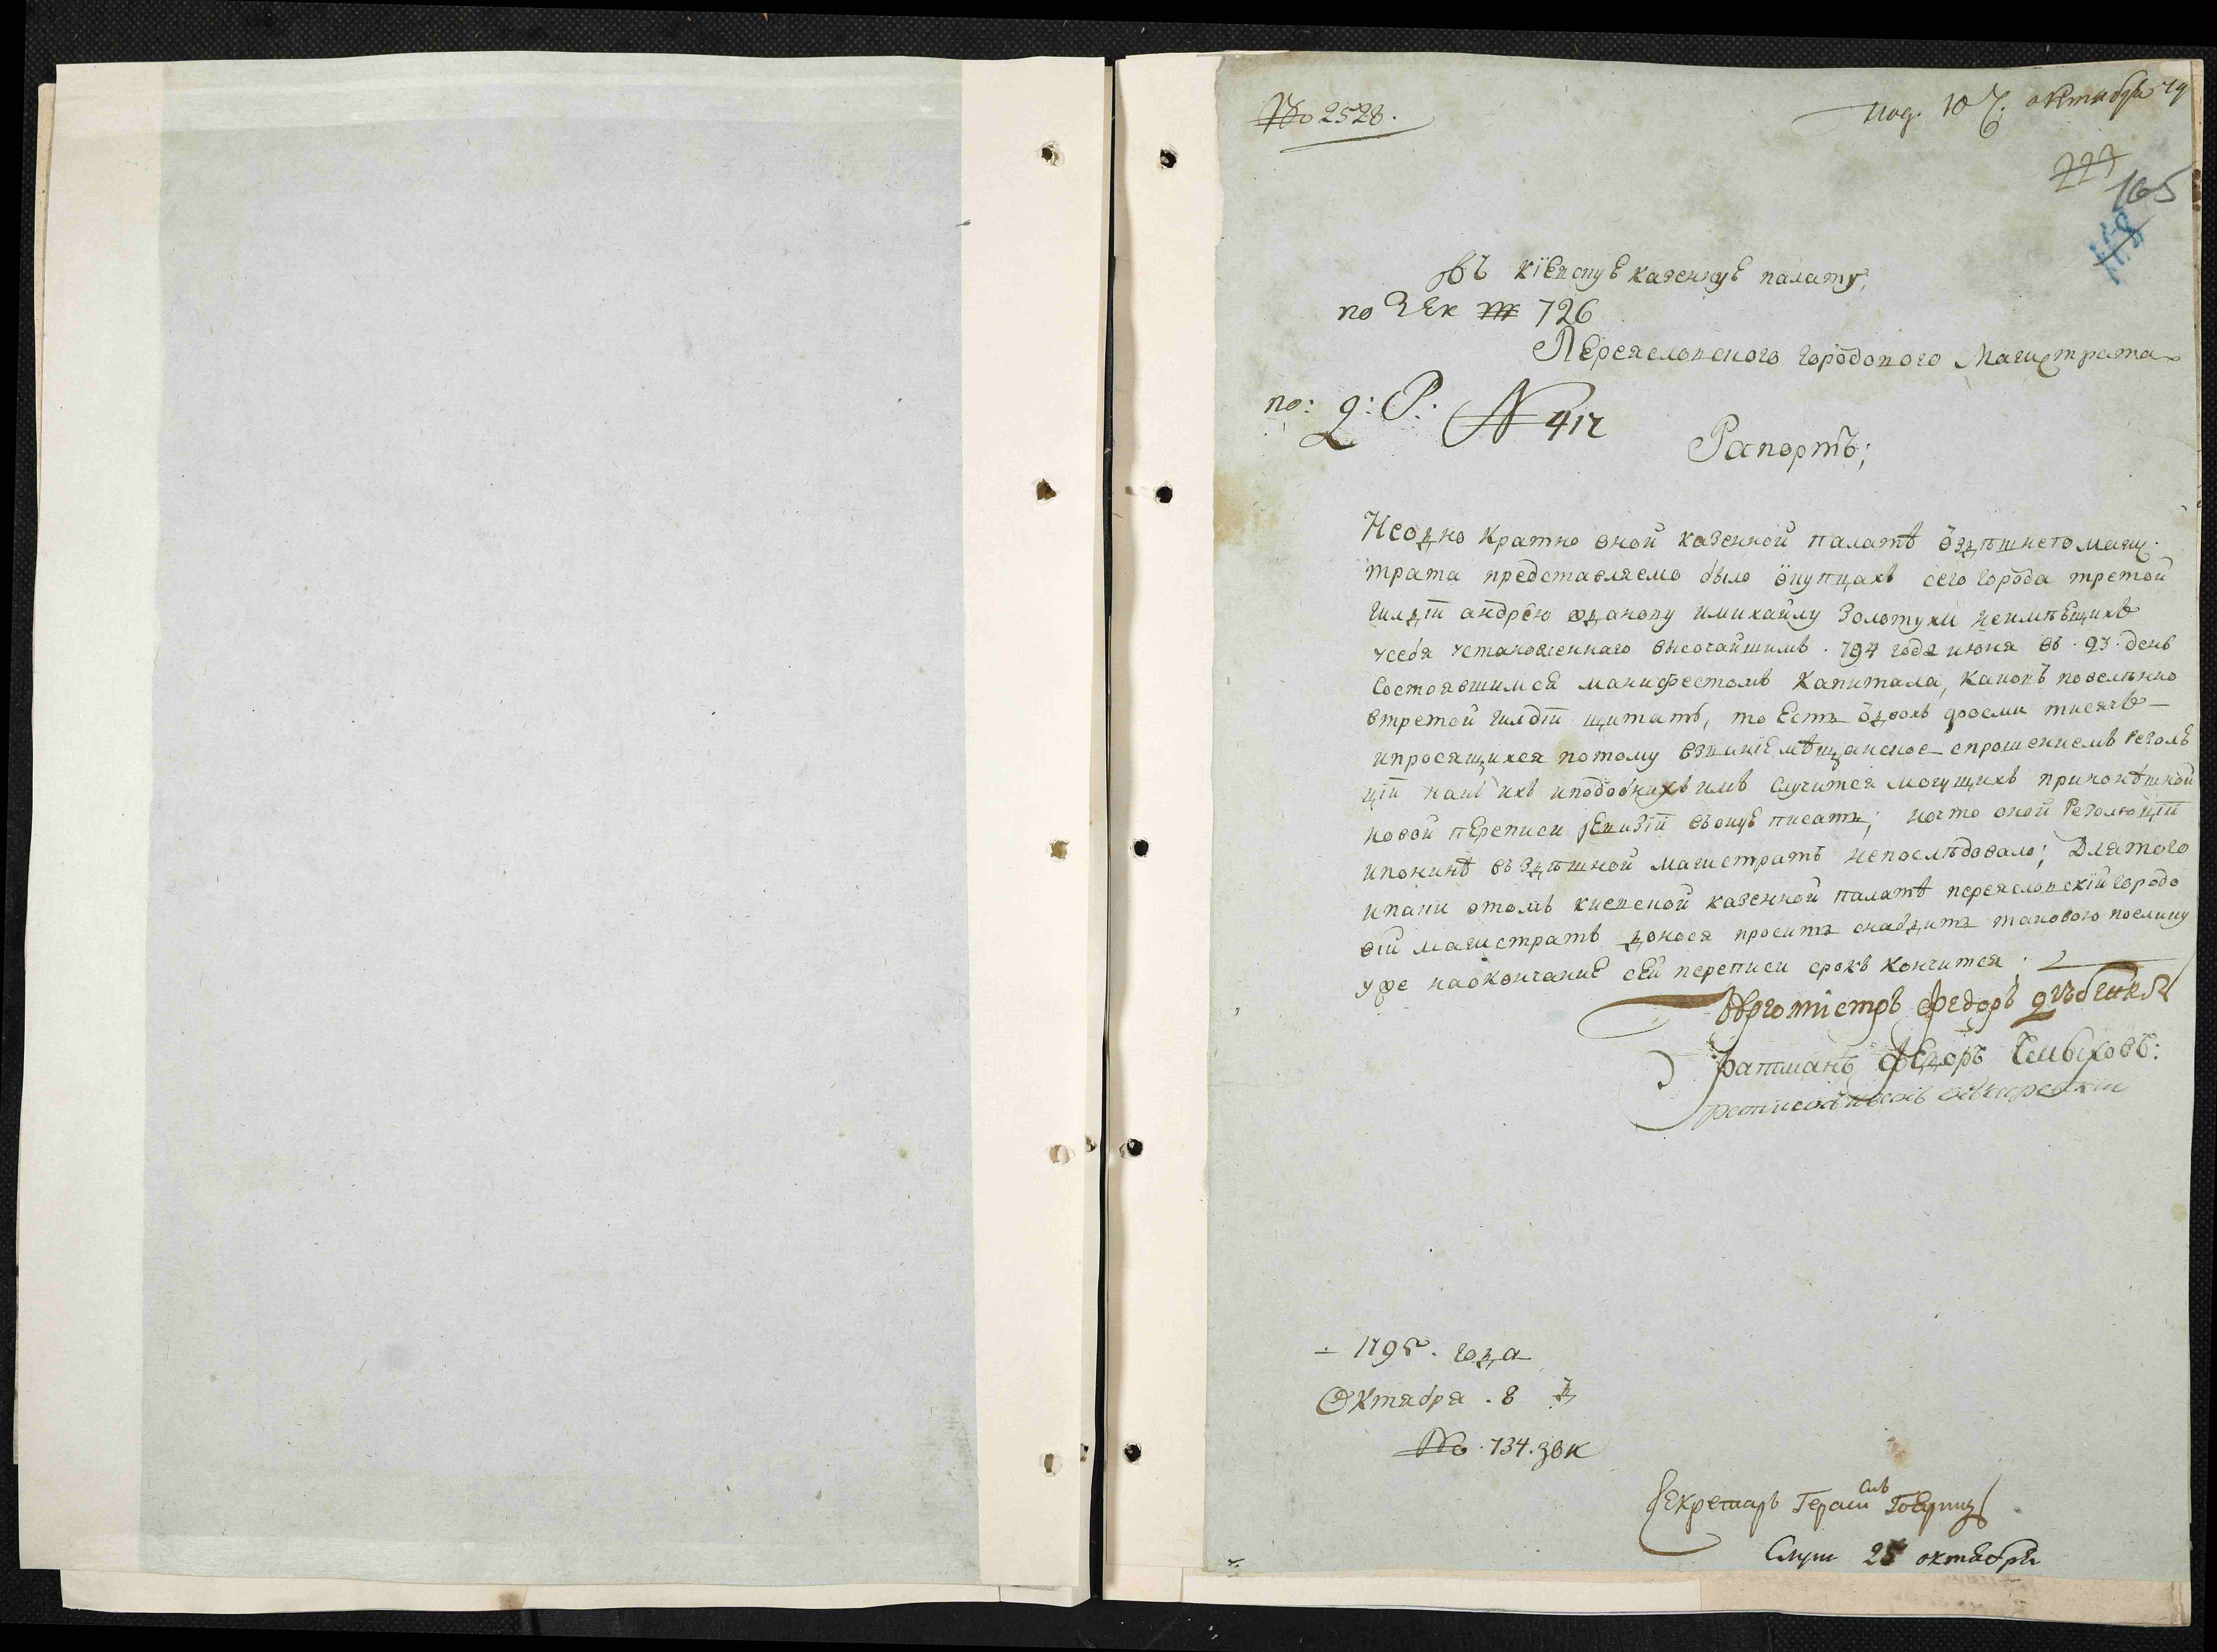 № 2528.
под. 10 октября 79
227
165
118
въ кіевскуе казеннуе палату,
по Зек 726
Переясловского городового магистрата
по: 2: Р. № 412
Рапортъ;
Неодно кратно оной казенной палатѣ ѿздѣшнего магис
трата представляемо было ѡкупцахъ сего города третой
гилдіи андрею жданову имихайлу Золотухи неимѣещихъ
усебя установленнаго высочайшимъ . 794 года июня въ . 23 . день
Состоявшимся манифестомъ капитала, каковъ повелѣнно
втретой гилдіи щитать, то есть ѿдвохъ довосми тисячъ
ипросящихся потому взваніе мѣщанское спрошениемъ резолю
ціи какъ ихъ иподобнихъ имъ Случится могущихъ принонѣшной
новой переписи ревизіи вонуе писать; ночто оной Резолюціи
ипонинѣ въздѣшной магистратъ непослѣдовало; Длятого
ипаки отомъ киевской казенной палатѣ переясловскій городо
вій магистратъ донося проситъ снабдить таковою поелику
уже наокончание сей переписи срокъ кончится .
Бургомистръ Федоръ
ратманъ Федоръ
ратманъ
1795 . года
Октября . 8 д
№ . 734 . звк
Секретарь Герасимъ
Слуш 25 октября